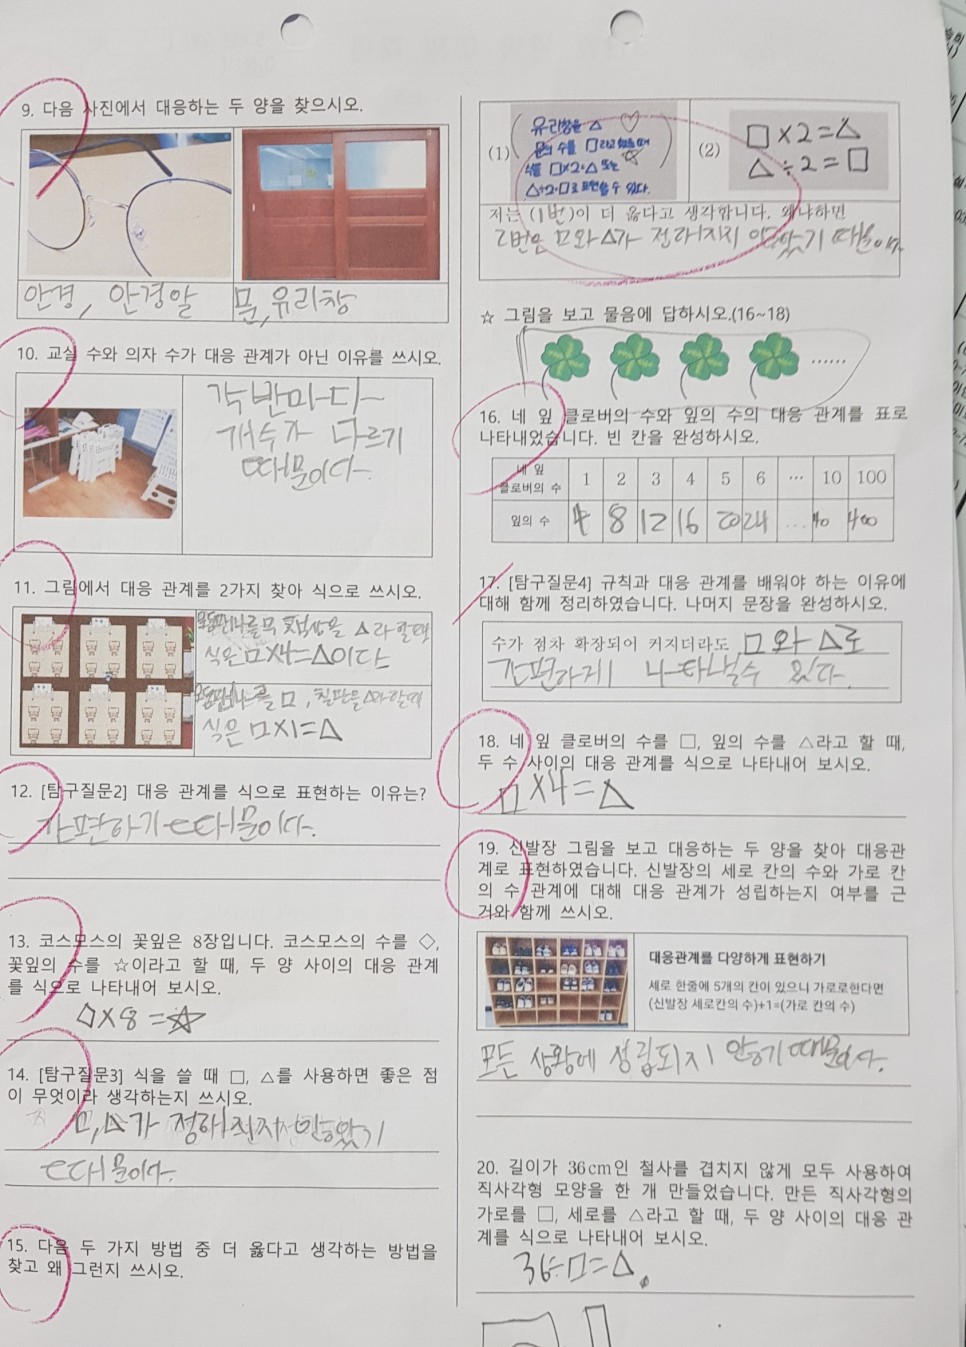 9. 다음 사진에서 대응하는 두 양을 찾으시오.
안경, 안경알
문, 유리창
10. 교실 수와 의자 수가 대응 관계가 아닌 이유를 쓰시오.
각 반마다
개수가 다르기
때문이다.
11. 그림에서 대응 관계를 2가지 찾아 식으로 쓰시오.
식은 □×4=△이다
식은 □×1=△
12. [탐구질문2] 대응 관계를 식으로 표현하는 이유는?
간편하기 때문이다.
13. 코스모스의 꽃잎은 8장입니다. 코스모스의 수를 ◇,
꽃잎의 수를 ☆이라고 할 때, 두 양 사이의 대응 관계
를 식으로 나타내어 보시오.
◇×8=☆
14. [탐구질문3] 식을 쓸 때 □, △를 사용하면 좋은 점
이 무엇이라 생각하는지 쓰시오.
□,△가 정해진지 않았기
때문이다.
15. 다음 두 가지 방법 중 더 옳다고 생각하는 방법을
찾고 왜 그런지 쓰시오.
(1)
유리창을 △
문의 수를 □라고 했을 때
식을 □×2=△ 또는
△÷2=□로 표현할 수 있다.
(2)
□×2=△
△÷2=□
저는 (1번)이 더 옳다고 생각합니다. 왜냐하면
2번은 □와 △가 정해지지 않았기 때문이다.
☆ 그림을 보고 물음에 답하시오.(16~18)
……
16. 네 잎 클로버의 수와 잎의 수의 대응 관계를 표로
나타내었습니다. 빈 칸을 완성하시오.
네 잎 클로버의 수 1 2 3 4 5 6 … 10 100
잎의 수 4 8 12 16 20 24 … 40 400
17. [탐구질문4] 규칙과 대응 관계를 배워야 하는 이유에
대해 함께 정리하였습니다. 나머지 문장을 완성하시오.
수가 점차 확장되어 커지더라도 □와 △로
간편하게 나타낼 수 있다.
18. 네 잎 클로버의 수를 □, 잎의 수를 △라고 할 때,
두 수 사이의 대응 관계를 식으로 나타내어 보시오.
□×4=△
19. 신발장 그림을 보고 대응하는 두 양을 찾아 대응관
계로 표현하였습니다. 신발장의 세로 칸의 수와 가로 칸
의 수 관계에 대해 대응 관계가 성립하는지 여부를 근
거와 함께 쓰시오.
대응관계를 다양하게 표현하기
세로 한줄에 5개의 칸이 있으니 가로로한다면
(신발장 세로칸의 수)+1=(가로 칸의 수)
모든 상황에 성립되지 안하기 때문이다.
20. 길이가 36cm인 철사를 겹치지 않게 모두 사용하여
직사각형 모양을 한 개 만들었습니다. 만든 직사각형의
가로를 □, 세로를 △라고 할 때, 두 양 사이의 대응 관
계를 식으로 나타내어 보시오.
36÷□=△.